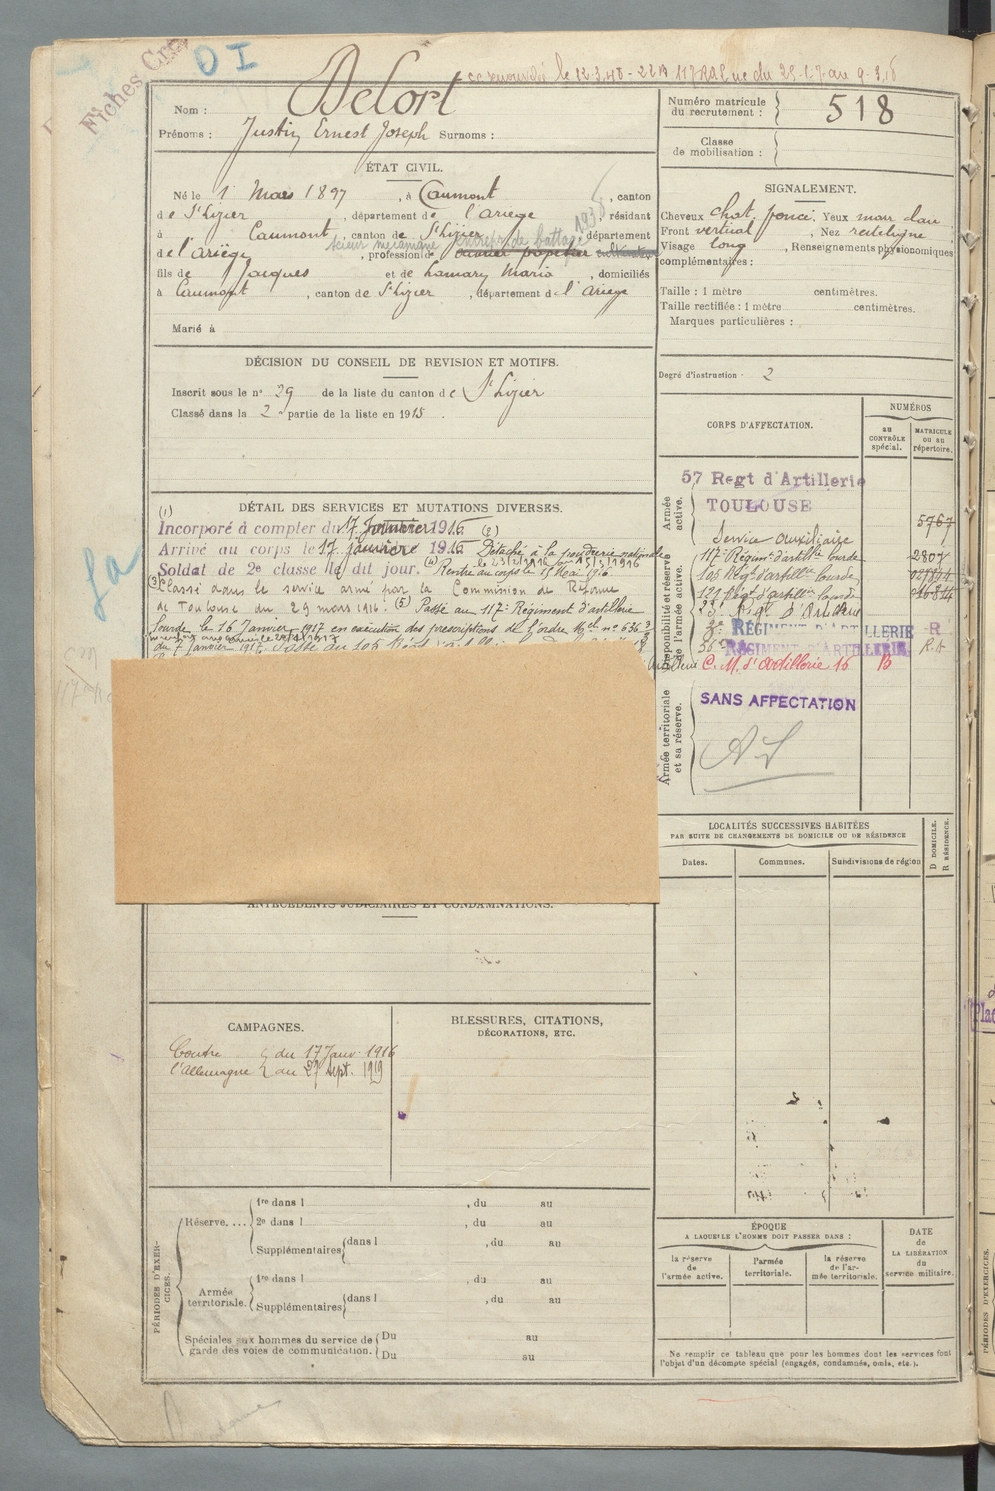 Fiches Cr
OI
le 12.3.40 - 22 117 RAL du 25-1-7 au 9-3-18
Nom : Delort
Prénoms : Justin Ernest Joseph Surnoms :
ÉTAT CIVIL.
Né le 1 Mars 1897, à Caumont, canton
de St Lizier, département de l'Ariege résidant
à Caumont, canton de St Lizier, département
1938
scieur mécanicien entrepr. de battage
de l'Ariège, profession de ouvrier papetier cultivateur
fils de Jacques et de Lamary Maria, domiciliés
à Caumont, canton de St Lizier, département de l'Ariege
Marié à
DÉCISION DU CONSEIL DE REVISION ET MOTIFS.
Inscrit sous le n° 29 de la liste du canton de St Lizier
Classé dans la 2 partie de la liste en 1915.
DÉTAIL DES SERVICES ET MUTATIONS DIVERSES.
(1)
Incorporé à compter du 17 Janvier 1916 (2)
Arrivé au corps le 17 janvier 1916 Détaché à la poudrerie nationale
le 23/2/1916 au 15/5/1916
Soldat de 2e classe le dit jour. (4) Rentré au corps le 15 Mai 1916
(3) Classé dans le service armé par la Commission de Réforme
de Toulouse du 29 mars 1916. (5) Passé au 117e Régiment d'artillerie
lourde le 16 Janvier 1917 en exécution des prescriptions de l'ordre Mel n° 636 3/3
du 7 Janvier 1917. Passé au 105
La
ANTÉCÉDENTS JUDICIAIRES ET CONDAMNATIONS.
CAMPAGNES.
Contre du 17 Janv. 1916
l'Allemagne au 27 Sept. 1919
BLESSURES, CITATIONS,
DÉCORATIONS, ETC.
PÉRIODES D'EXERCICES.
Réserve....
1re dans l , du au
2e dans l , du au
Supplémentaires dans l , du au
Armée territoriale.
1re dans l , du au
Supplémentaires dans l , du au
Spéciales aux hommes du service de garde des voies de communication.
Du au
Du au
Numéro matricule
du recrutement : 518
Classe
de mobilisation :
SIGNALEMENT.
Cheveux chat. foncé. Yeux mar. clair
Front vertical, Nez rectiligne
Visage long, Renseignements physionomiques
complémentaires :
Taille : 1 mètre centimètres.
Taille rectifiée : 1 mètre centimètres.
Marques particulières :
Degré d'instruction : 2
CORPS D'AFFECTATION.
NUMÉROS
AU CONTRÔLE spécial.
MATRICULE OU AU répertoire.
Armée active.
57 Regt d'Artillerie
TOULOUSE
5767
Service auxiliaire
Disponibilité et réserve de l'armée active.
117e Régimt d'artillie lourde 2807
105 Régt d'artillie lourde
121 Régt d'artillie lourde
RÉGIMENT D'ARTILLERIE R
RÉGIMENT D'ARTILLERIE R.A
C. M. d'artillerie 16 B
Armée territoriale et sa réserve.
SANS AFFECTATION
LOCALITÉS SUCCESSIVES HABITÉES
PAR SUITE DE CHANGEMENTS DE DOMICILE OU DE RÉSIDENCE
D DOMICILE. R RÉSIDENCE.
Dates. Communes. Subdivisions de région
ÉPOQUE
A LAQUELLE L'HOMME DOIT PASSER DANS :
la réserve de l'armée active.
l'armée territoriale.
la réserve de l'armée territoriale.
DATE de LA LIBÉRATION du service militaire.
Ne remplir ce tableau que pour les hommes dont les services font
l'objet d'un décompte spécial (engagés, condamnés, omis, etc.).
PÉRIODES D'EXERCICES.